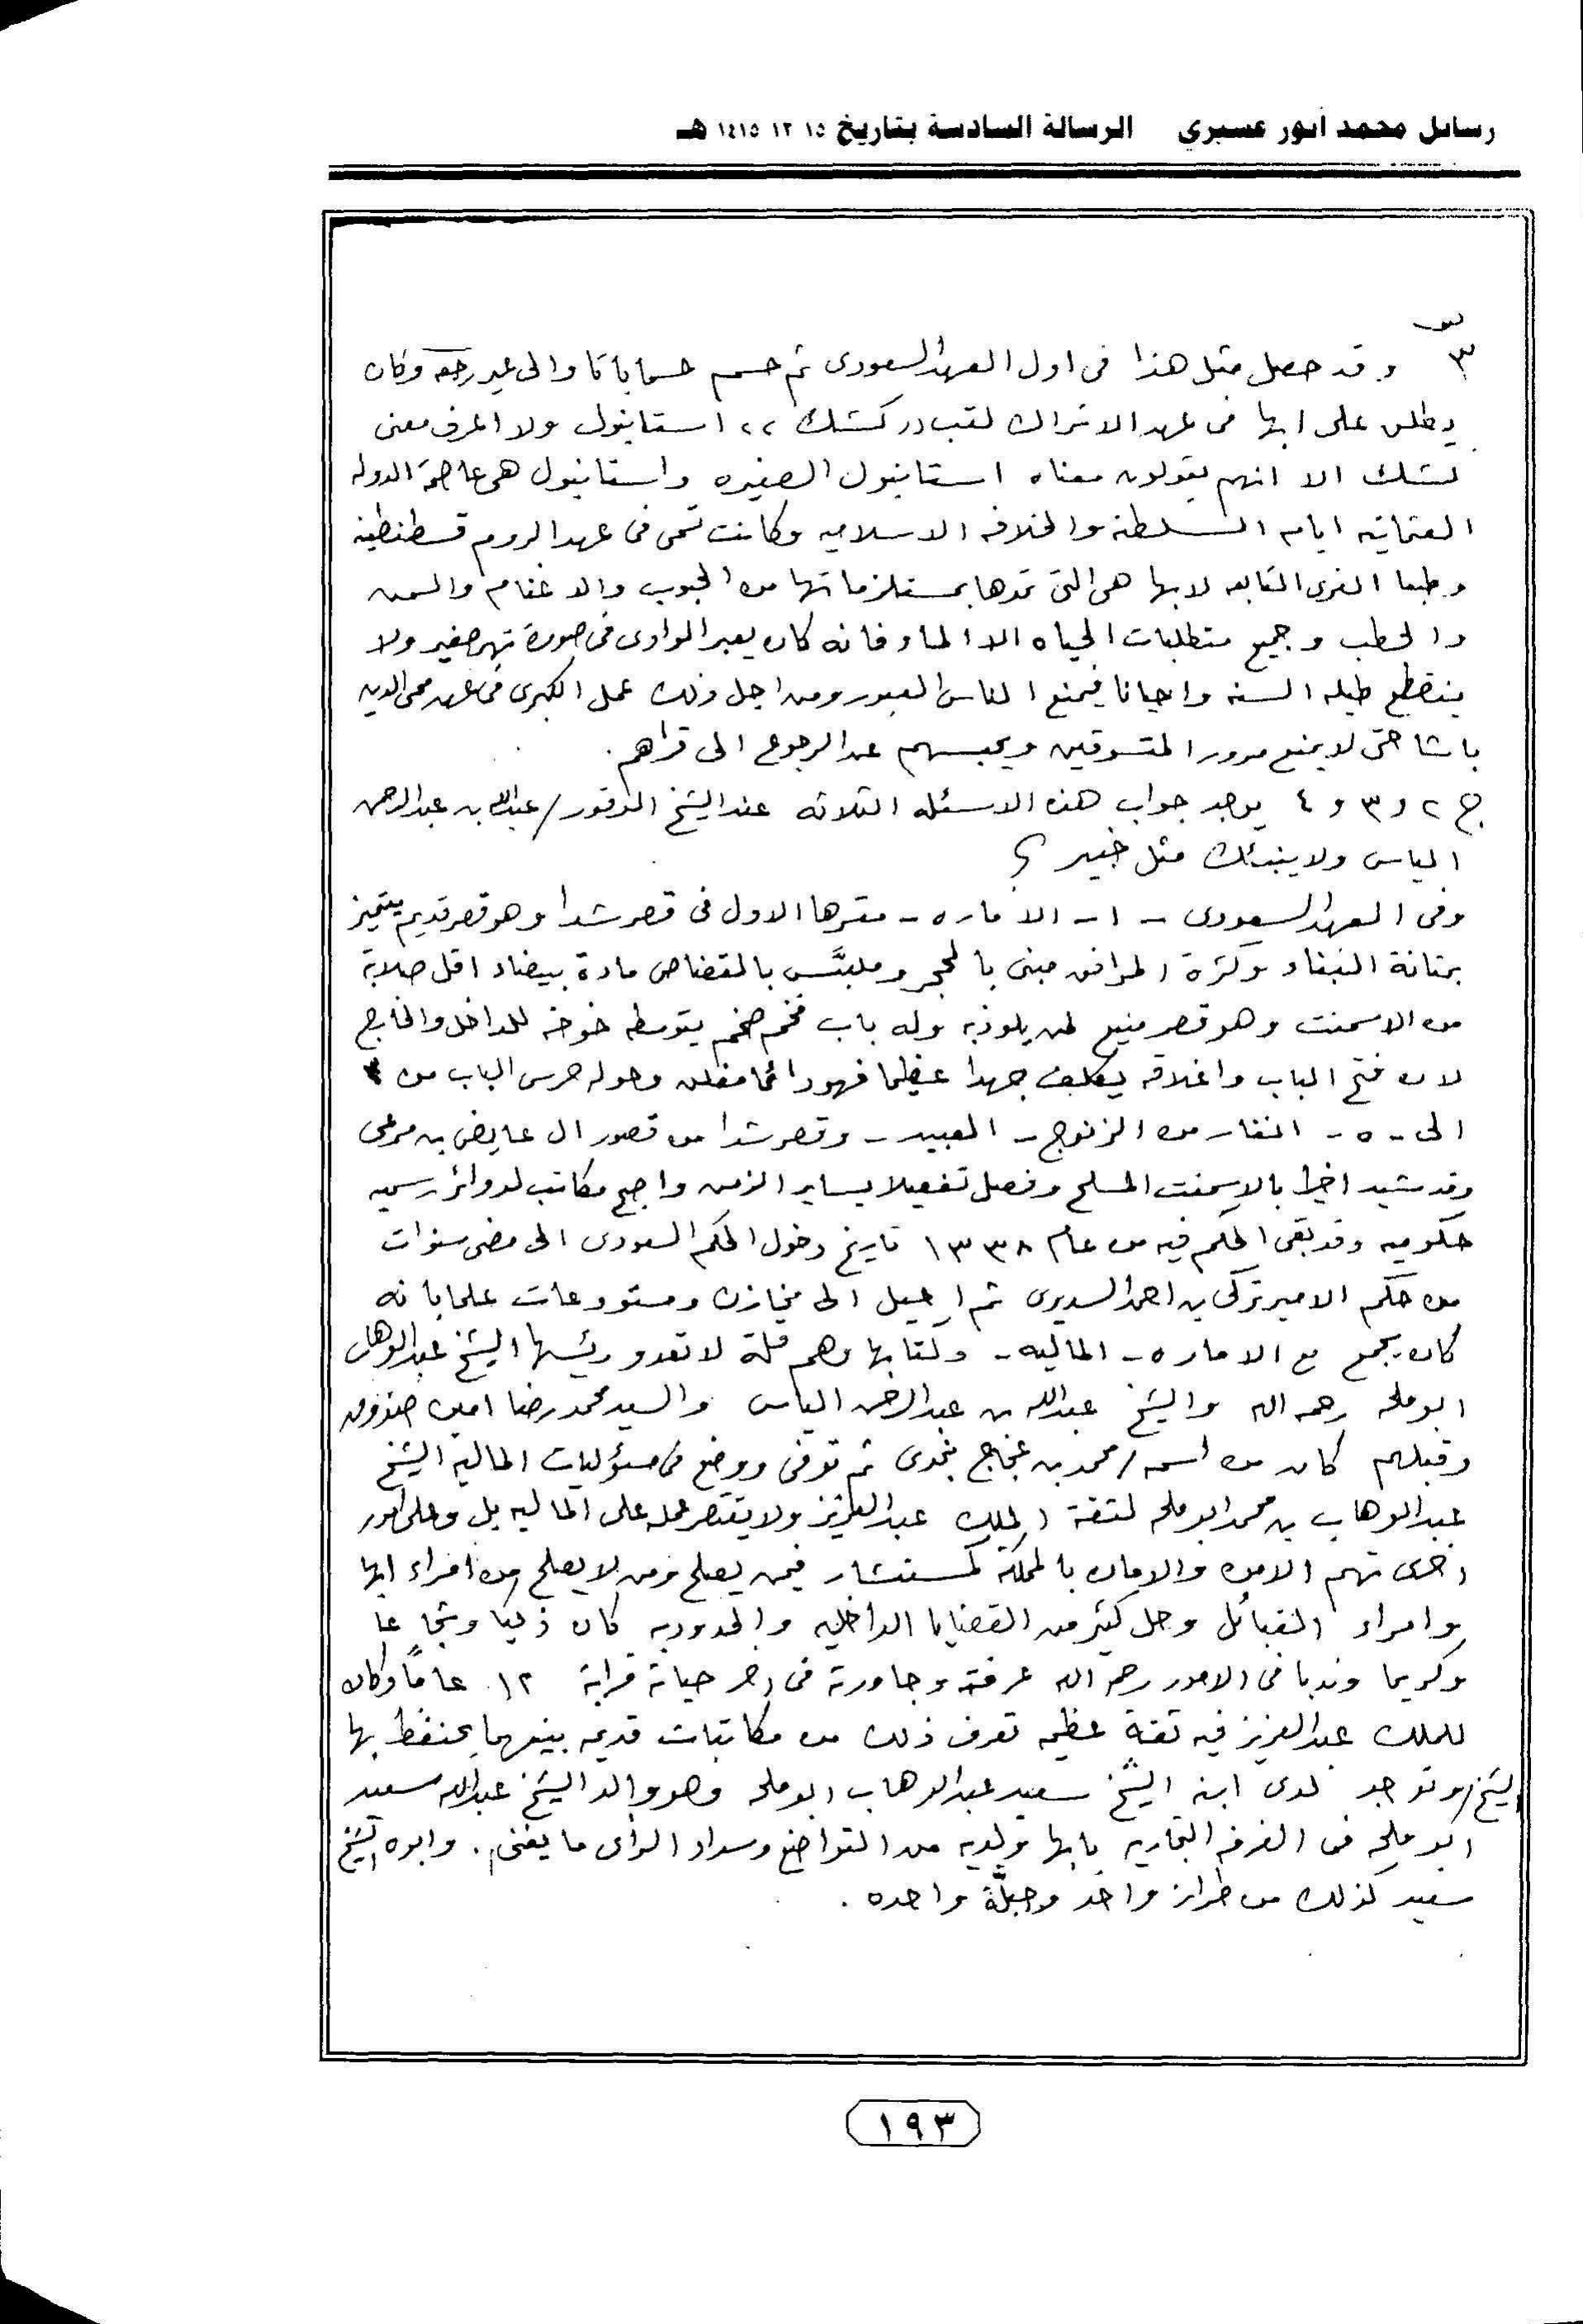 رسائل محمد أنور عسيري الرسالة السادسة بتاريخ ١٥ ١٢ ١٤١٥ هـ
٣ وقد حصل مثل هذا فى اول العهد السعودى ثم حسم حسما باتا والى غير رجعه وكان
يطلق على ابها فى عهد الاتراك لقب ,, كشك ،، استانبول ولا اعرف معنى
كشك الا انهم يقولون معناه استانبول الصغيره واستانبول هى عاصمة الدوله
العثمانيه ايام السلطنة والخلافه الاسلاميه وكانت تسمى فى عهد الروم قسطنطينه
وطبعا القرى التابعه لابها هى التى تمدها بمستلزماتها من الحبوب والاغنام والسمن
والحطب وجميع متطلبات الحياه الا الماء فانه كان يعبر الوادى فى صورة نهر صغير ولا
ينقطع طيله السنه واحيانا فيمنع الناس العبور ومن اجل ذلك عمل الكبرى فى عهد محى الدين
باشا حتى لا يمنع مرور المتسوقين ويحبسهم عن الرجوع الى قراهم .
ج ٢ و ٣ و ٤ يوجد جواب هذه الاسئله الثلاثه عند الشيخ الوقور / عبدالله بن عبدالرحمن
الياس ولا ينبئك مثل خبير
وفى العهد السعودى - ١ - الاماره - مقرها الاول فى قصر شدا وهو قصر قديم يتميز
بمتانة البناء وكثرة المرافق مبنى بالحجر وملبَّس بالقضاض مادة بيضاء اقل صلابة
من الاسمنت وهو قصر منيع لمن يلوذ به وله باب فخم ضخم يتوسطه خوخه للداخل والخارج
لان فتح الباب واغلاقه يكلف جهدا عظيما فهو دائما مغلق وحوله حرس الباب من ٣
الى - ٥ - انفار من الزنوج - العبيد - وقصر شدا من قصور ال عايض بن مرعى
وقد شيد اخيرا بالاسمنت المسلح وفصل تفصيلا يساير الزمن واصبح مكاتب لدوائر رسميه
حكوميه وقد بقى الحكم فيه من عام ١٣٣٨ تاريخ دخول الحكم السعودى الى مضى سنوات
من حكم الامير تركى بن احمد السديرى ثم احيل الى مخازن ومستودعات علما بانه
كان يجمع مع الاماره - الماليه - وكتابها وهم قلة لا تعدو رئيسها الشيخ عبدالوهاب
ابو ملحه رحمه الله والشيخ عبدالله بن عبدالرحمن الياس والسيد محمد رضا امين صندوق
وقبلهم كان من اسمه / محمد بن عجاج نجدى ثم توفى ووضع فى مسؤليات الماليه الشيخ
عبدالوهاب بن محمد ابو ملحه لثقة الملك عبدالعزيز ولا يقتصر عمله على الماليه بل وعلى امور
اخرى تهم الامن والامان بالمملكه كمستشار فيمن يصلح ومن لا يصلح من امراء ابها
وامراء القبائل وحل كثير من القضايا الداخليه والحدوديه كان ذكيا وشجاعا
وكريما وندبا فى الامور رحمه الله عرفته وجاورته فى اخر حياته قرابة ١٢ عاماً وكان
للملك عبدالعزيز فيه ثقة عظيمه تعرف ذلك من مكاتبات قديمه بينهما يحتفظ بها
الشيخ / وتوجد لدى ابنه الشيخ سعيد عبدالوهاب ابو ملحه وهو والد الشيخ عبدالله سعيد
ابو ملحه فى الغرفه التجاريه بابها ولديه من التواضع وسداد الراى ما يغنى . وابوه الشيخ
سعيد كذلك من طراز واحد وجبلَّة واحده .
١٩٣